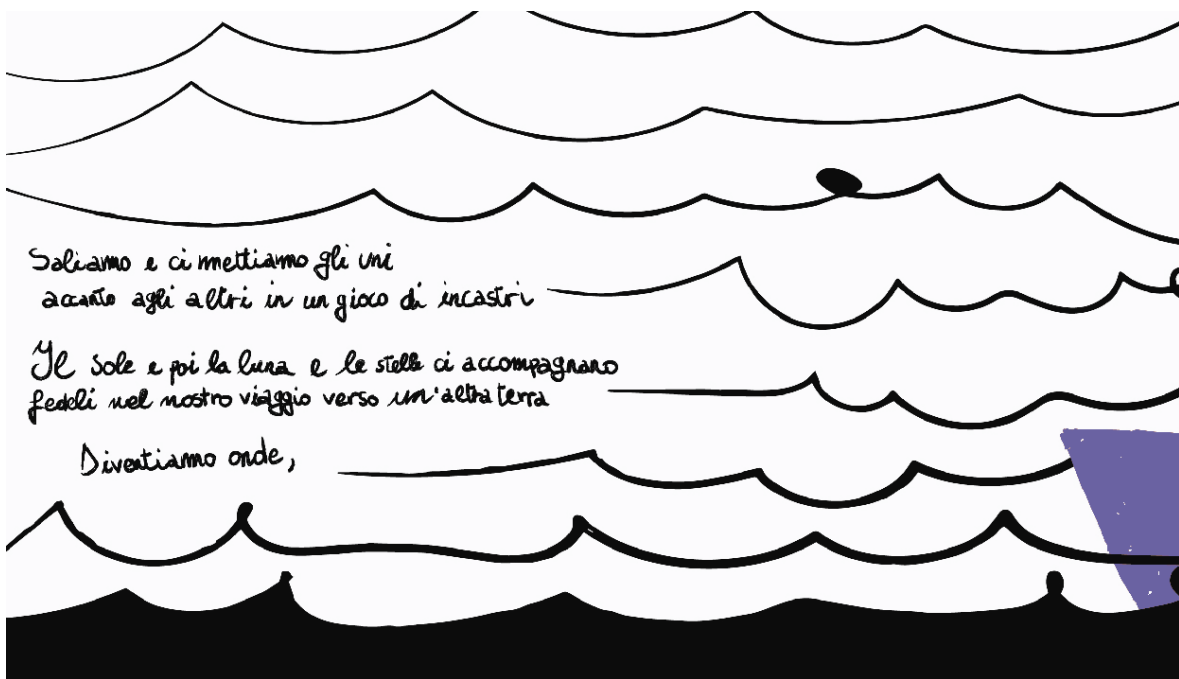 Saliamo e ci mettiamo gli uni
accanto agli altri in un gioco di incastri
Il sole e poi la luna e le stelle ci accompagnano
fedeli nel nostro viaggio verso un'altra terra
Diventiamo onde,